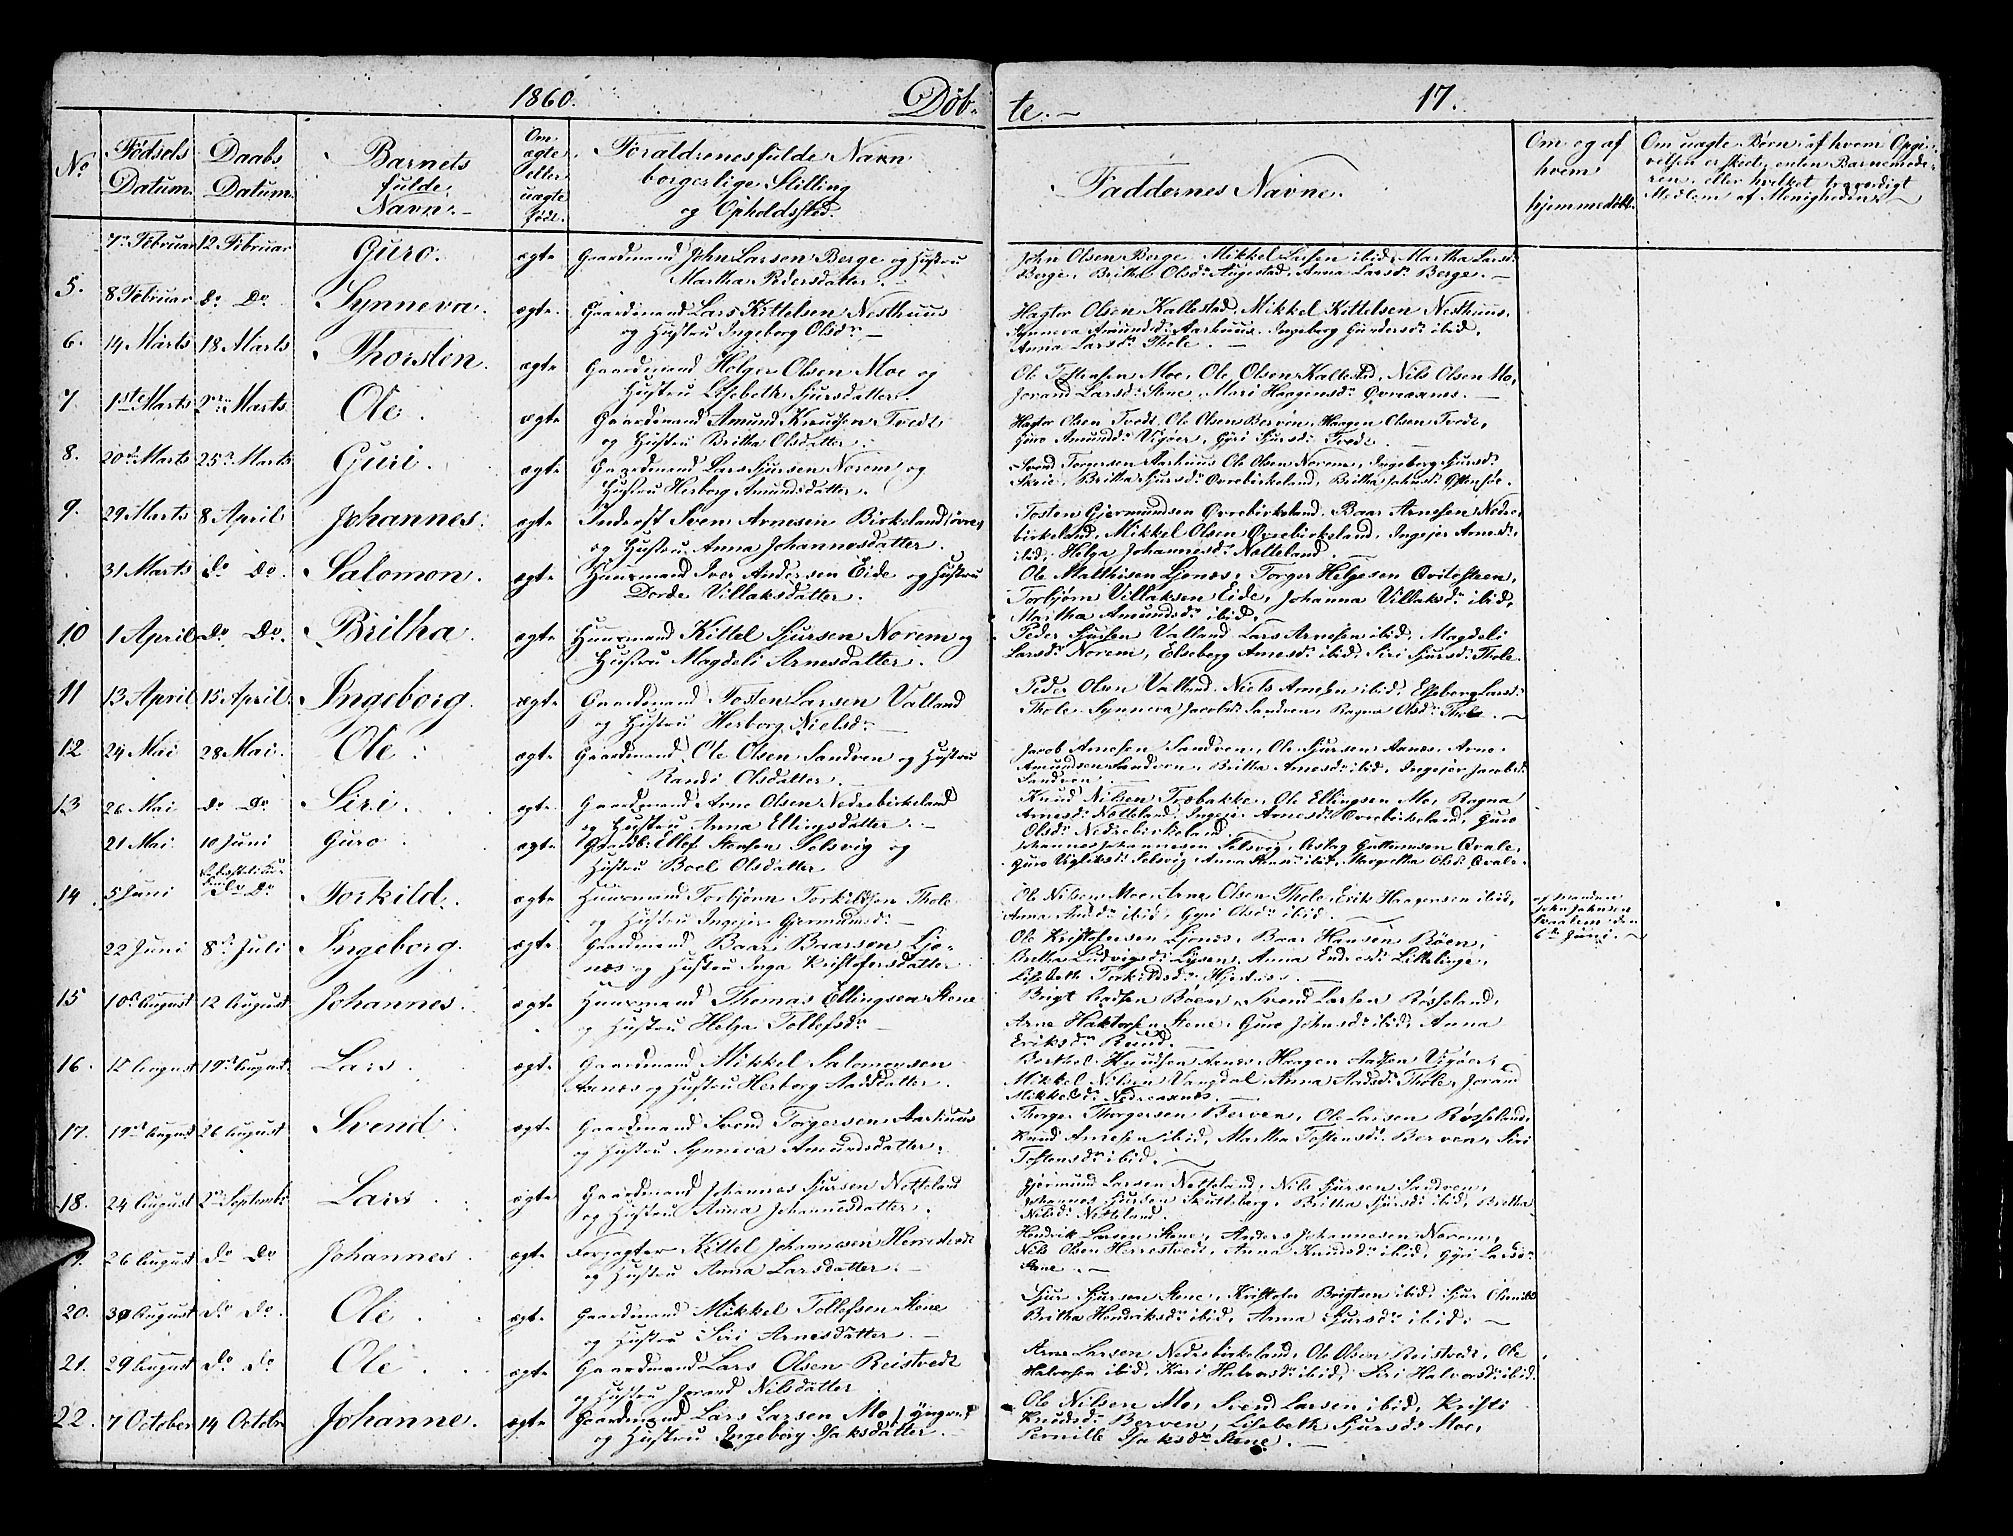 1860.
Døb-
te.-
17.
No
Fødsels Datum.
Daabs Datum.
Barnets fulde Navn.-
Om ægte eller uægte født.
Forældrenes fulde Navn borgerlige Stilling og Opholdssted.
Faddernes Navne.
Om og af hvem hjemmedøbt.
Om uægte Børn, af hvem Opgivelsen er skeet, enten Barnemoderen, eller hvilket troværdigt Medlem af Menigheden.
7de Februar 12 Februar Guro. ægte Gaardmand John Larsen Berge og Hustru
Martha Pedersdatter.
John Olsen Berge, Mikkel ibid, Martha Larsdr
Berge, Britha Olsdr Augestad, Anna Larsdr Berge.-
5. 8 Februar do Do Synneva. ægte. Gaardmand Lars Kittelsen Nesthuus
og Hustru Ingeborg Olsdr-
Hagtor Olsen Kallestad, Mikkel Kittelsen Nesthuus,
Synneva Amundsdr Aarhuus, Ingeborg ibid,
Anna Larsdr Thole.-
6. 14 Marts 18 Marts Thorsten. ægte Gaardmand Helger Olsen Moe og
Hustru Lisebeth Sjursdatter.
Ole Moe, Ole Olsen Kallestad, Nils Olsen Mo,
Jorand Larsdr Stene, Mari Haagensdr
7. 1ste Marts Marts Ole. ægte Gaardmand Amund Knudsen Tvedt,
og Hustru Britha Olsdatter.
Hagtor Olsen Tvedt, Ole Olsen Berven, Haagen Olsen Tvedt,
Guro Amundsdr Vigøer, Gyri Sjursdr Tvedt.-
8. 20de Marts 25de Marts Guri. ægte Gaardmand Lars Sjursen Norem og
Hustru Herborg Amundsdatter.
Svend Torgersen Aarhuus, Ole Olsen Norem, Ingeborg Sjursdr
Skeie, Britha Sjursdr Øvrebirkeland, Britha
9. 29 Marts 8 April Johannes. ægte Inderst Sven Arnesen Birkeland øvre
og Hustru Anna Johannesdatter.
Tosten Gjermundsen Øvrebirkeland, Baar Arnesen Nedre-
birkeland, Mikkel Olsen Øvrebirkeland, Ingejer Arnesdr
ibid, Helga Johannesdr Netteland.
31 Marts Do Do. Salomon. ægte Huusmand Iver Andersen Eide og Hustru
Dorde Villaksdatter.
Ole Mathisen Ljones, Torger Helgesen Qvitesteen,
Torbjørn Villaksen Eide, Johanna Villaksdr ibid,
Martha Amundsdr ibid.
10 1 April Do Do. Britha. ægte Huusmand Kittel Sjursen Norem og
Hustru Magdeli Arnesdatter.
Peder Sjursen Valland, Lars Arnesen ibid, Magdeli
Larsdr Norem, Elseberg Arnesdr ibid, Siri Sjursdr Thole.
11 13 April 15 April. Ingeborg. ægte Gaardmand Tosten Larsen Valland
og Hustru Herborg Nielsdr-
Peder Olsen Valland, Niels Arnesen ibid, Elseberg Larsdr
Thole, Synneva Jacobsdr Sandven, Ragna Olsdr Thole.
12. 24 Mai 28 Mai. Ole. ægte Gaardmand Ole Olsen Sandven og Hustru
Randi Olsdatter.
Jacob Arnesen Sandven, Ole Sjursen Aanæs, Arne
Amundsen Sandven, Britha Arnesdr ibid, Ingejer Jacobsdr
Sandven.
13 26 Mai do Do Siri. ægte Gaardmand Arne Olsen Nedrebirkeland
og Hustru Anna Ellingsdatter.-
Knud Nilsen Træbakke, Ole Ellingsen Mo, Ragna
Arnesdr Netteland, Ingejer Arnesdr Øvrebirkeland, Guro
Olsdr Nedrebirkeland.
21 Mai 10 Juni Guro. ægte Stensen Selsvig og
Hustru Boel Olsdatter
Johannes Johannesen Selsvig, Aslag Guttormsen Qvale,
Guro Vigliksdr Selsvig, Anna ibid, Margretha Olsdr Qvale.
14. 5 Juni Do Torkild. ægte Huusmand Torbjørn Torkildsen Thole
og Hustru Ingejer Gjermundsdr-
Ole Nilsen Moe, Arne Olsen Thole, Erik Haagensen ibid,
Anna ibid, Gyri Olsdr ibid.
John Johnsen den
6te Juni.
22 Juni 8de Juli Ingeborg. ægte Gaardmand Baar Baarsen Ljo-
næs og Hustru Inga Kristofersdatter
Ole Kristofersen Ljones, Baar Hansen Røen,
Britha Ludvigsdr Anna
Lisebeth Torkildsdr
15 10de August 12 August Johannes. ægte Huusmand Thomas Ellingsen Stene
og Hustru Helga Tollefsdr-
Brigt Svend Larsen Røsseland,
Arne Haktorsen Stene, Guro Johnsdr ibid, Anna
Eriksdr
16. August 19de August. Lars. ægte Gaardmand Mikkel Salomonsen
Aanæs og Hustru Herborg Aadsdatter.
Knudsen Aanæs, Haagen Aadsen Vigøer,
Mikkel Nilsen Vangdal, Anna Aadsdr Thole, Jorand
Mikkelsdr
17. 19de August 26 August Svend. ægte Gaardmand Svend Torgersen Aarhuus
og Hustru Synneva Amundsdatter.
Thorger Thorgersen Berven, Ole Larsen Røsseland,
Knud Arnesen ibid, Martha Tostensdr Berven, Siri
Tostensdr ibid.
18. 24 August 2den September Lars. ægte Gaardmand Johannes Sjursen Netteland
og Hustru Anna Johannesdatter.
Gjermund Larsen Netteland, Nils Sjursen Sandven,
Johannes Sjursen Skutteberg, Britha Sjursdr ibid, Britha
Nilsdr Netteland.
19. 26 August Do Do Johannes ægte Forpagter Kittel Johannesen Herrestvedt
og Hustru Anna Larsdatter.-
Hendrik Larsen Stene, Anders Johannesen Norem,
Nils Olsen Herrestvedt, Anna Knudsdr ibid, Gyri Larsdr
Stene.-
20. 30 August Do Do. Ole. ægte Gaardmand Mikkel Tollefsen Stene
og Hustru Siri Arnesdatter.-
Sjur Sjursen Stene, Kristofer Brigtsen ibid, Sjur
Britha Hendriksdr ibid, Anna Sjursdr ibid.
21. 29 August Do Do Ole. ægte Gaardmand Lars Olsen Reistvedt
og Hustru Jorand Nilsdatter
Arne Larsen Nedrebirkeland, Ole Olsen Reistvedt, Ole
Halvorsen ibid, Kari Halvorsdr ibid, Siri Halvorsdr ibid.
22. 7 October 14 Octobr Johanne. ægte Gaardmand Lars Larsen Mo (yngre)
og Hustru Ingeborg Isaksdatter.-
Ole Nilsen Mo, Svend Larsen ibid, Kristi
Knudsdr Berven, Lisebeth Sjursdr Moe,
Pernille Isaksdr Stene.-